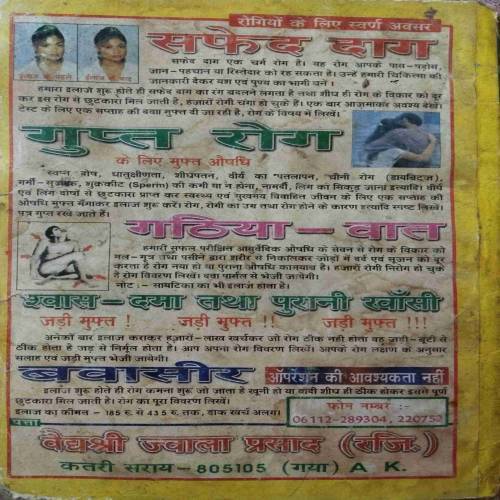 रोगियों के लिए स्वर्ण अवसर
सफेद दाग
इलाज के पहले
इलाज के बाद
सफेद दाग एक चर्म रोग है। यह रोग आपके पास-पड़ोस,
जान-पहचान या रिस्तेदार को रह सकता है। उन्हें हमारी चिकित्सा की
जानकारी देकर यश एवं पूण्य का भागी बनें।
हमारा इलाज शुरू होते ही सफेद दाग का रंग बदलने लगता है तथा शीघ्र ही रोग के विकार को दूर
कर इस रोग से छुटकारा मिल जाती है, हजारों रोगी चंगा हो चुके हैं। एक बार आजमाकर अवश्य देखें।
टेस्ट के लिए एक सप्ताह की दवा मुफ्त दी जा रही है, रोग के विषय में लिखें।
गुप्त रोग
के लिए मुफ्त औषधि
स्वप्न दोष, धातुक्षीणता, शीघ्रपतन, वीर्य का पतलापन, चीनी रोग (डायबिट्ज),
गर्मी-सुजाक, शुक्रकीट (Sperm) की कमी या न होना, नामर्दी, लिंग का सिकुड़ जाना इत्यादि। वीर्य
एवं लिंग दोषों से छुटकारा प्राप्त कर स्वस्थ्य एवं सुखमय विवाहित जीवन के लिए एक सप्ताह की
औषधि मुफ्त मँगाकर इलाज शुरू करें। रोग, रोगी का उम्र तथा रोग होने के कारण इत्यादि स्पष्ट लिखें।
पत्र गुप्त रखे जाते हैं।
गठिया-वात
हमारी सफल परीक्षित आयुर्वेदिक औषधि के सेवन से रोग के विकार को
मल-मूत्र तथा पसीने द्वारा शरीर से निकालकर जोड़ों में दर्द एवं सूजन को दूर
करता है रोग नया हो या पुराना औषधि कामयाब है। हजारों रोगी निरोग हो चुके
हैं रोग विवरण लिखें। दवा पार्सल से भेजी जायेगी।
नोट:- सायटिका का भी इलाज होता है।
श्वास-दमा तथा पुरानी खाँसी
जड़ी मुफ्त ! जड़ी मुफ्त !! जड़ी मुफ्त !!!
अनेकों बार इलाज कराकर हजारों-लाख खर्चकर जो रोग ठीक नहीं होता वह जड़ी-बूटी से
ठीक होता है जड़ से निर्मूल होता है। आप अपना रोग विवरण लिखें। आपके रोग लक्षण के अनुसार
सलाह एवं जड़ी मुफ्त भेजी जायेगी।
बवासीर ऑपरेशन की आवश्यकता नहीं
इलाज शुरू होते ही रोग कमना शुरू हो जाता है खूनी हो या वादी शीघ्र ही ठीक होकर इससे पूर्ण
छुटकारा मिल जाती है। रोग का पूरा विवरण लिखें।
इलाज का कीमत - 185 रु. से 435 रु. तक, डाक खर्च अलग।
फोन नम्बर :-
06112-289304, 220752
पता
वैद्यश्री ज्वाला प्रसाद (रजि.)
कतरी सराय-805105 (गया) A K.